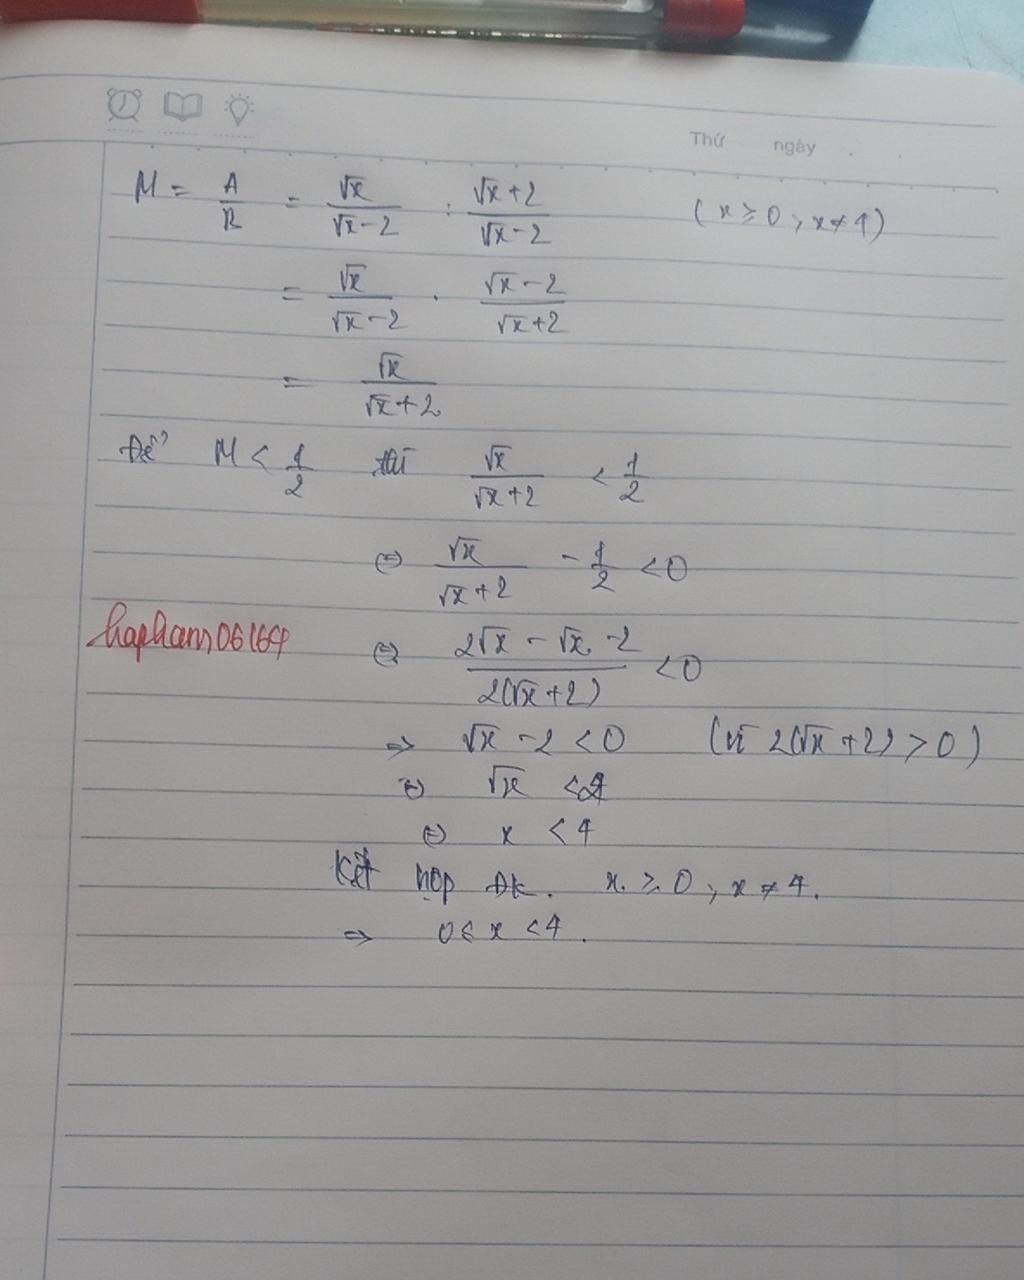 Thứ ngày
M = A/B = √x/(√x-2) : (√x+2)/(√x-2) (x ≥ 0 ; x ≠ 4)
= √x/(√x-2) . (√x-2)/(√x+2)
= √x/(√x+2)
Để M < 1/2 thì √x/(√x+2) < 1/2
⇔ √x/(√x+2) - 1/2 < 0
hapham06164
⇔ (2√x - √x - 2)/(2(√x+2)) < 0
⇒ √x - 2 < 0 (vì 2(√x+2) > 0)
⇔ √x < 2
⇔ x < 4
Kết hợp ĐK. x ≥ 0 ; x ≠ 4.
⇒ 0 ≤ x < 4.